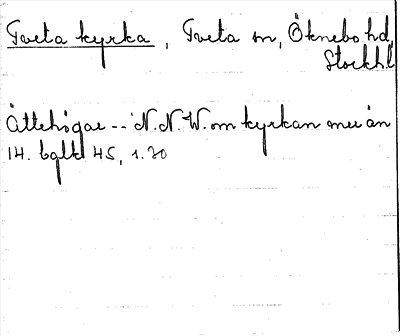 Tveta kyrka, Tveta sn, Öknebo hd,
Stockhl
Ättehögar -- N.N.W. om kyrkan mer än
14. bglk 45, 1.20